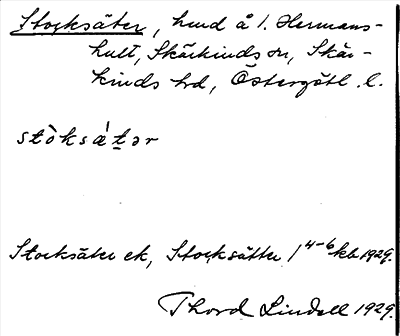 Stocksäter, hmd å 1. Hermans-
hult, Skärkinds sn, Skär-
kinds hd, Östergötl. l.
stòksǽtər
Stocksäter ek, Stocksätter 1/4-6 kb 1929.
Thord Lindell 1929.